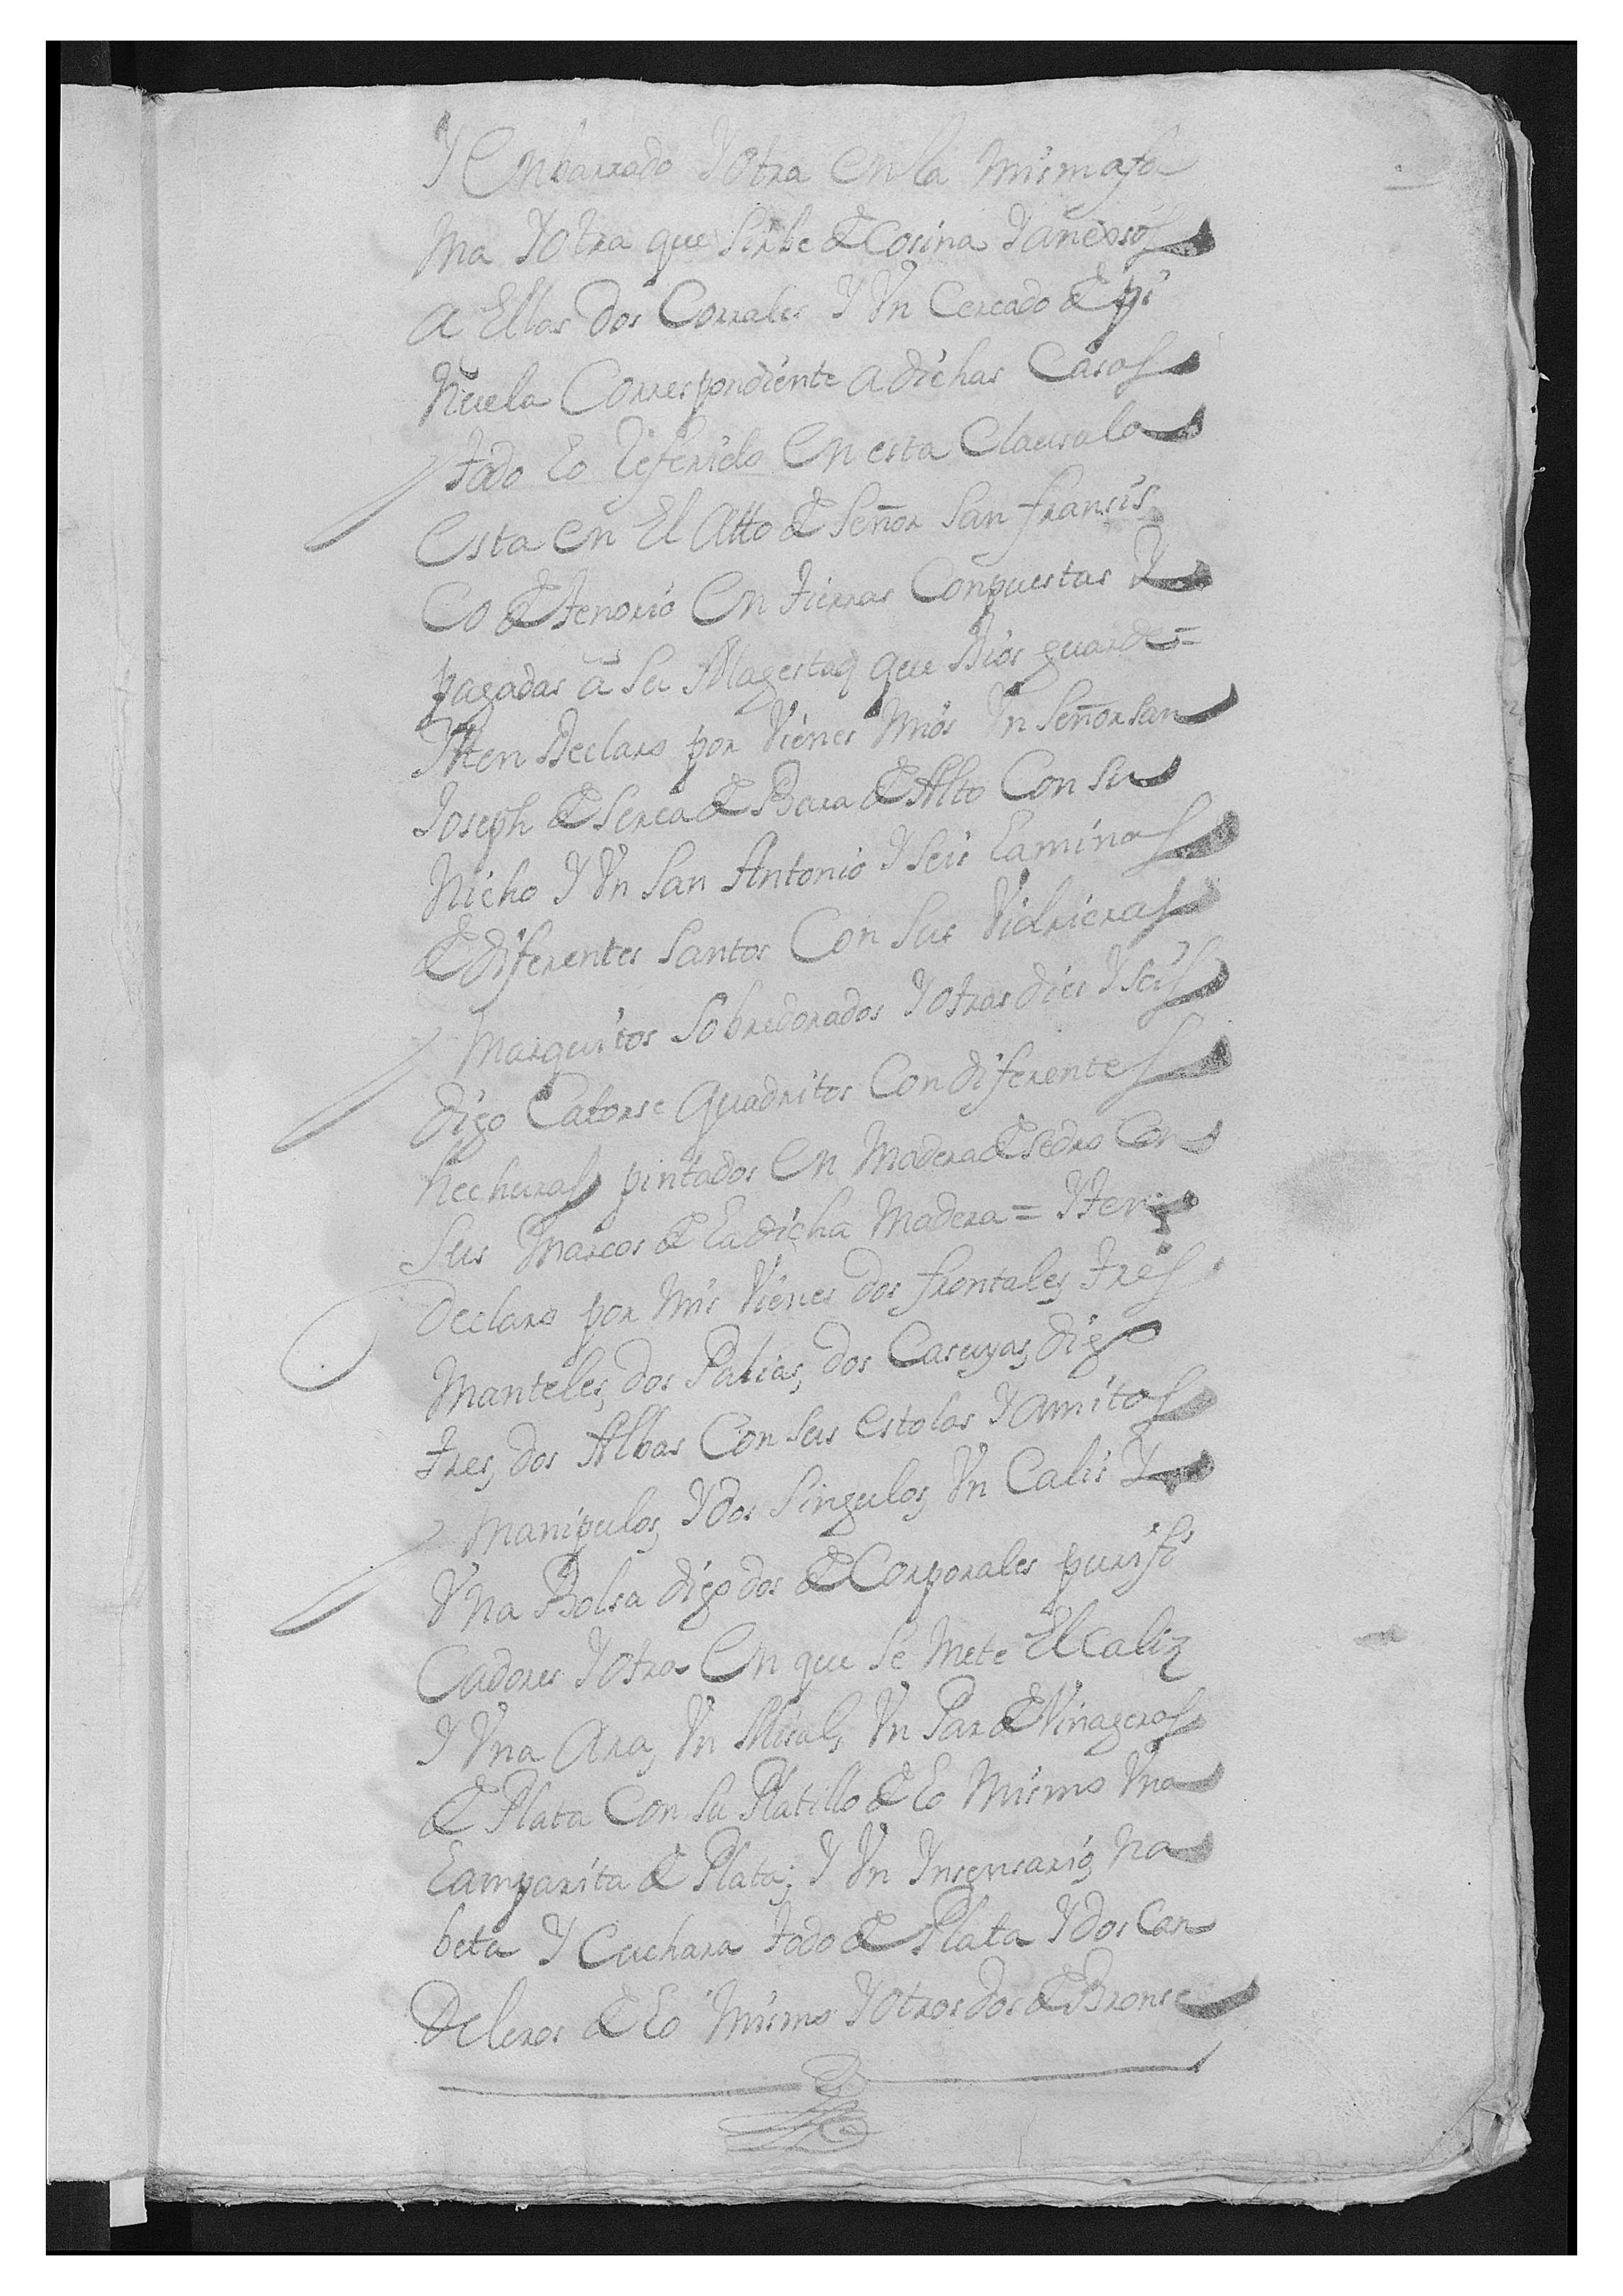 Y Enbarrado Y otra En la misma for
ma Y otra que Sirbe de Cosina Y anexos
a Ellas Dos Corrales Y Vn Cercado de pi
ñuela Correspondiente a dichas Casas
todo lo Referido En esta Clausala
Esta En El Alto de Señor San fransis
Co de tenorio En tierras Conpuestas Y
pagadas â Su Magestad que Dios guarde =
Yten Declaro por Vienes mios Vn Señor San
Joseph de Serca de Bara de Alto Con Su
Nicho Y Vn San Antonio Y Seis Laminas
de diferentes Santos Con Sus Vidrieras
Marquitos Sobredorados Y otras dies Y Seis
digo Catorse Quadritos Con diferentes
hechuras pintados En Madera de Sedro Con
Sus Marcos de La dicha Madera = Yten
Declaro por mis Vienes dos frontales, tres
Manteles, dos Palias, dos Casuyas, digo
tres, dos Albas Con Sus estolas Y amitos
Manipulos, Y dos Singulos, Vn Calis Y
Vna Bolsa digo dos de Corporales purifi
Cadores Y otra En que Se Mete El Caliz
Y Vna Ara, Vn Misal, Vn Par de Vinageras
de Plata Con Su Platillo de Lo Mismo Vna
Lamparita de Plata; Y Vn Ynsensario, na
beta Y Cuchara todo de Plata Y dos Can
Deleros de Lo Mismo Y otros dos de Bronse